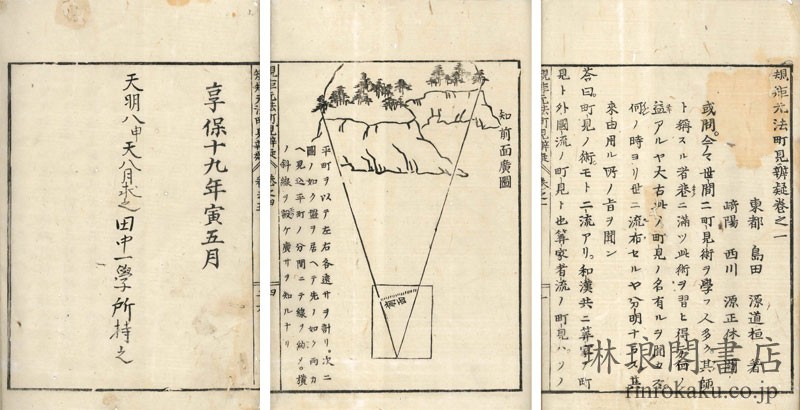 規矩元法町見辨疑卷之一
東都　島田　源道桓　著
崎陽　西川　源正休　閲
或問今々世間ニ町見術ヲ學フ人多ク其師
ト稱スル者巷ニ滿ツ此術ヲ習ヒ得
益アルヤ太古此ノ町見ノ名有ルヲ聞カス
何ノ時ヨリ世ニ流布セルヤ分明ナラス其
来由用ル所ノ旨ヲ聞ン
答曰町見ノ術モト二流アリ和漢共ニ算家ノ町
見ト外國流ノ町見ト也算家者流ノ町見ハソノ
知前面廣圖
平町ヲ以テ左右各遠サヲ計リ次ニ
圖ノ如ク盤ヲ居ヘテ先ノ如ク両カ
ヘ見込平町ノ分間ニテ線ヲ約メ横
ノ斜線ヲ設ケ廣サヲ知ルナリ
規矩元法町見辨疑　卷之四
享保十九年寅五月
天明八申天八月求之　田中一學所持之
林琅閣書店
rinrokaku.co.jp